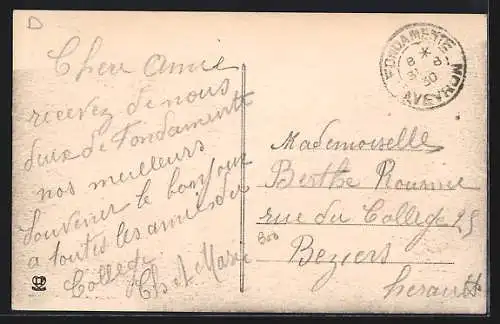 D
Chere Amie
recevez de nous
deux de Fondamente
nos meilleurs
Souvenir le bonjour
a toutes les amies du
College
et Marie
FONDAMENTE
AVEYRON
8 *
30
Mademoiselle
Berthe
rue du College 25
Beziers
herault